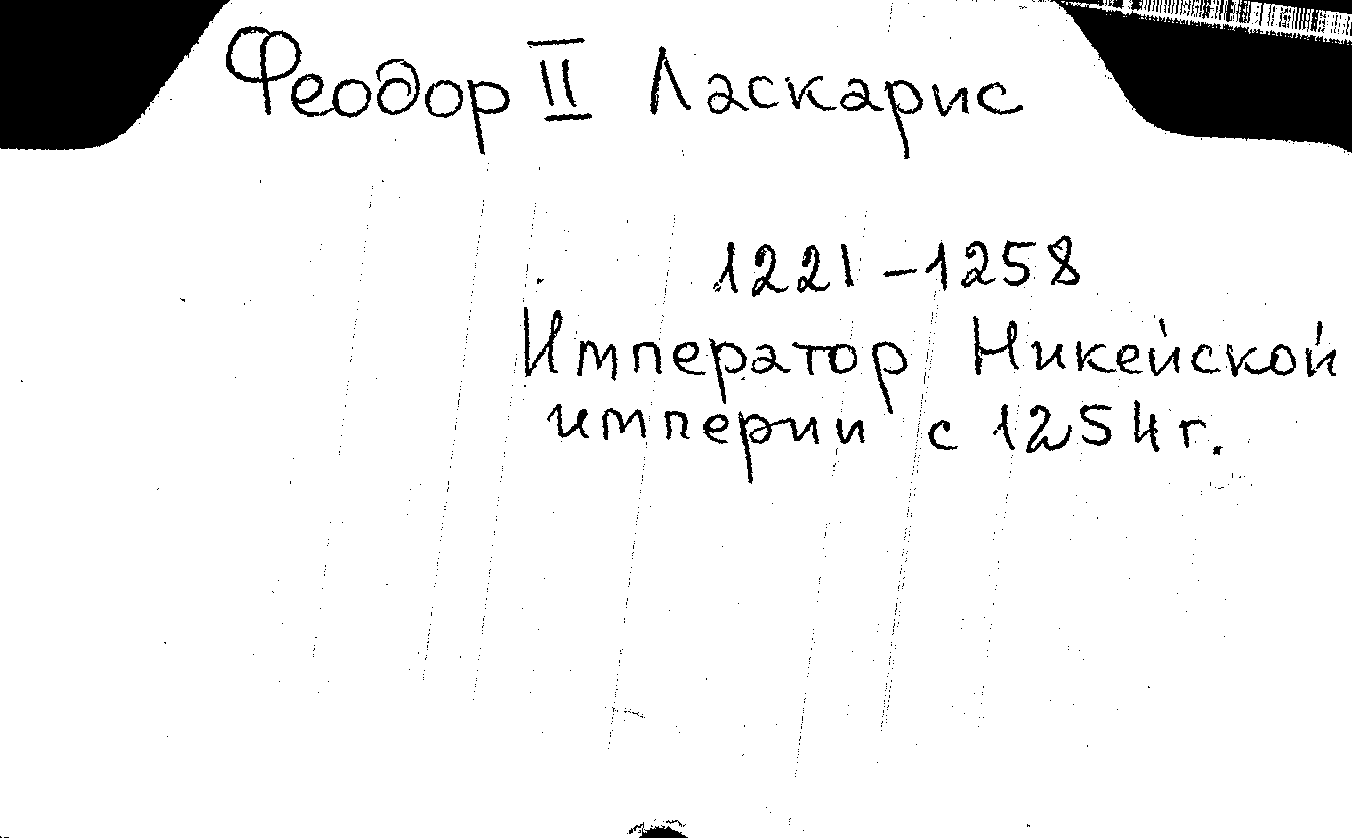 Феодор II Ласкарис
1221-1258
Император Никейской
империи с 1254 г.